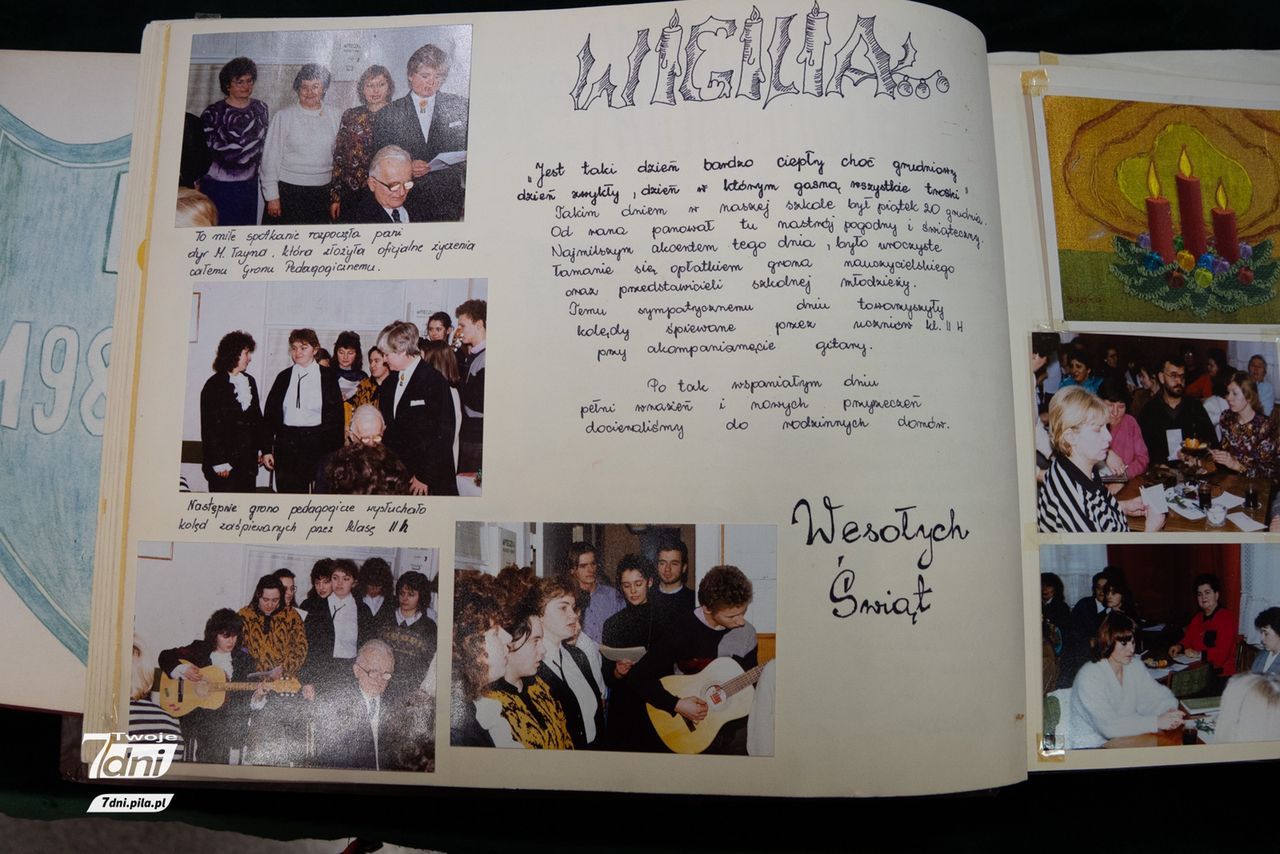 198
WIGILIA...
To miłe spotkanie rozpoczęła pani
dyr M. Tzyna, która złożyła oficjalne życzenia
całemu Gronu Pedagogicznemu.
Następnie grono pedagogicze wysłuchało
kolęd zaśpiewanych przez klasę II h
„Jest taki dzień bardzo ciepły choć grudniowy
dzień zwykły, dzień w którym gasną wszystkie troski"
Takim dniem w naszej szkole był piątek 20 grudnia.
Od rana panował tu nastrój pogodny i świąteczny.
Najmilszym akcentem tego dnia, było uroczyste
łamanie się opłatkiem grona nauczycielskiego
oraz przedstawicieli szkolnej młodzieży.
Temu sympatycznemu dniu towarzyszyły
kolędy śpiewane przez uczniów kl. II H
przy akompaniamęcie gitary.
Po tak wspaniałym dniu
pełni wrażeń i nowych przyrzeczeń
docieraliśmy do rodzinnych domów.
Wesołych
Świąt
Twoje
7dni
7dni.pila.pl